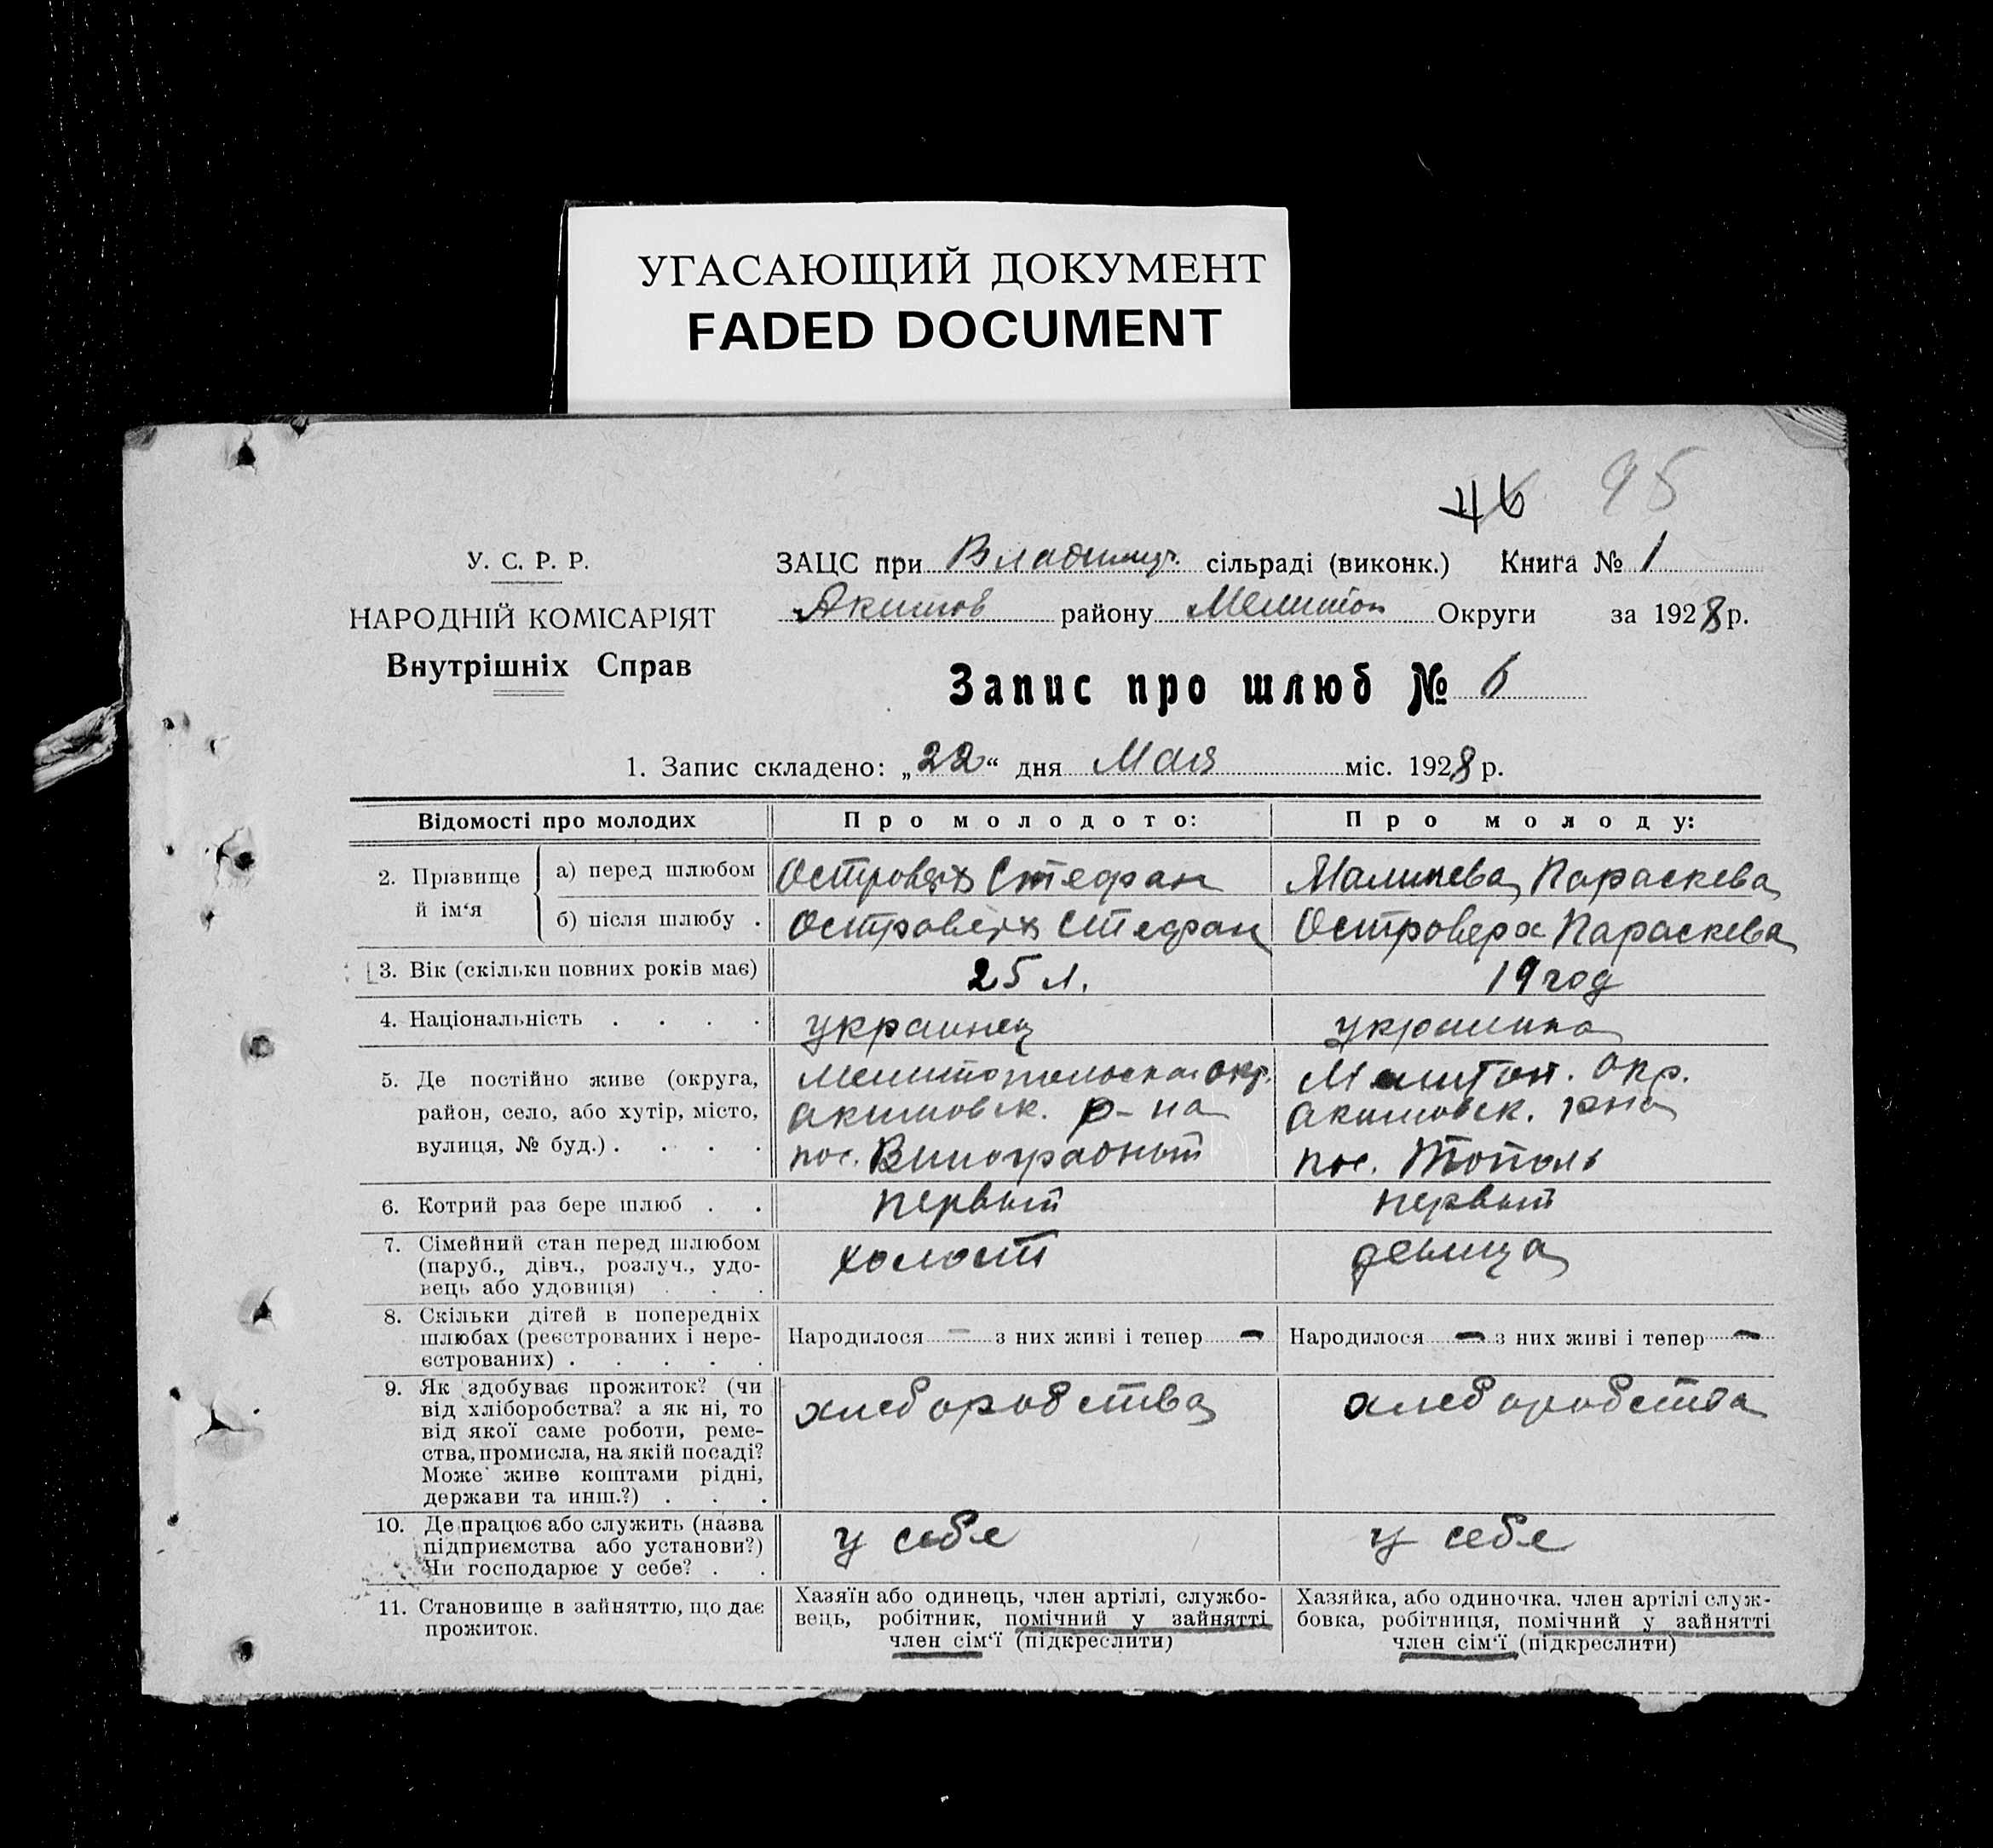 УГАСАЮЩИЙ ДОКУМЕНТ
FADED DOCUMENT
46 95
У. С. Р. Р.
НАРОДНІЙ КОМІСАРІЯТ
Внутрішніх Справ
ЗАЦС при Владимир. сільраді (виконк.) Книга № 1
Акимов району Мелитоп Округи за 1928 р.
Запис про шлюб № 6
1. Запис складено: „22“ дня Мая міс. 1928 р.
Відомості про молодих
Про молодого:
Про молоду:
2. Прізвище й ім‘я
а) перед шлюбом
Островерх Стефан
Параскева
б) після шлюбу .
Островерх Стефан
Островерх Параскева
3. Вік (скільки повних років має)
25 л.
19 год
4. Національність . . . .
украинец
украинка
5. Де постійно живе (округа,
район, село, або хутір, місто,
вулиця, № буд.) . . . .
Мелитопольская окр.
Акимовск. р-на
пос. Виноградный
Мелитоп. окр.
Акимовск. рна
пос. Тополь
6. Котрий раз бере шлюб . .
первый
первый
7. Сімейний стан перед шлюбом
(паруб., дівч., розлуч., удо-
вець або удовиця) . . .
холост
девица
8. Скільки дітей в попередніх
шлюбах (реєстрованих і нере-
єстрованих) . . . . .
Народилося — з них живі і тепер —
Народилося — з них живі і тепер —
9. Як здобуває прожиток? (чи
від хліборобства? а як ні, то
від якої саме роботи, реме-
ства, промисла, на якій посаді?
Може живе коштами рідні,
держави та инш.?) . . .
хлеборобства
хлеборобства
10. Де працює або служить (назва
підприємства або установи?)
Чи господарює у себе? . .
у себе
у себе
11. Становище в зайняттю, що дає
прожиток.
Хазяїн або одинець, член артілі, службо-
вець, робітник, помічний у зайнятті
член сім‘ї (підкреслити)
Хазяйка, або одиночка, член артілі служ-
бовка, робітниця, помічний у зайнятті
член сім‘ї (підкреслити)